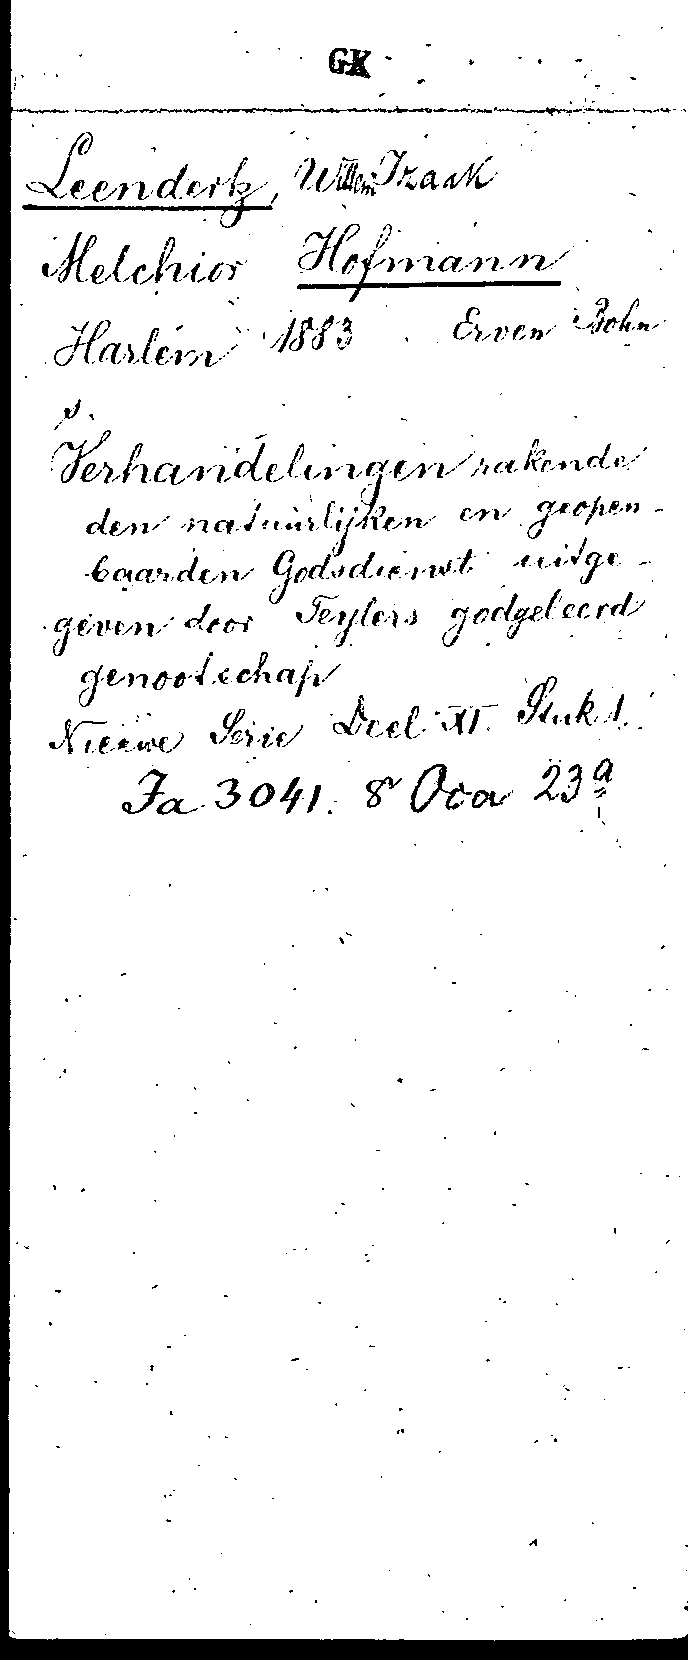 GK
Leendertz, Willem Izaak
Melchior Hofmann
Harlem 1883. Erven Bohn
s.
Verhandelingen rakende
den natuurlijken en geopen-
baarden Godsdienst uitge-
geven door Teylers godgeleerd
genootschap
Nieuwe Serie Deel XI. Stuk 1.
Ja 3041. 8° Oca 23a